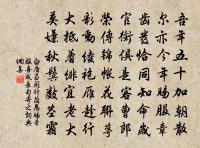 吾年五十加朝散
尔亦今年賜服章
齒髮恰同知命歲
官銜俱是客曹郎
榮傳錦帳花聯萼
彩動綾袍雁趁行
大抵著緋宜老大
莫嫌秋鬢數莖霜
白居易聞行簡恩賜章
服喜成長句寄之詩典
網